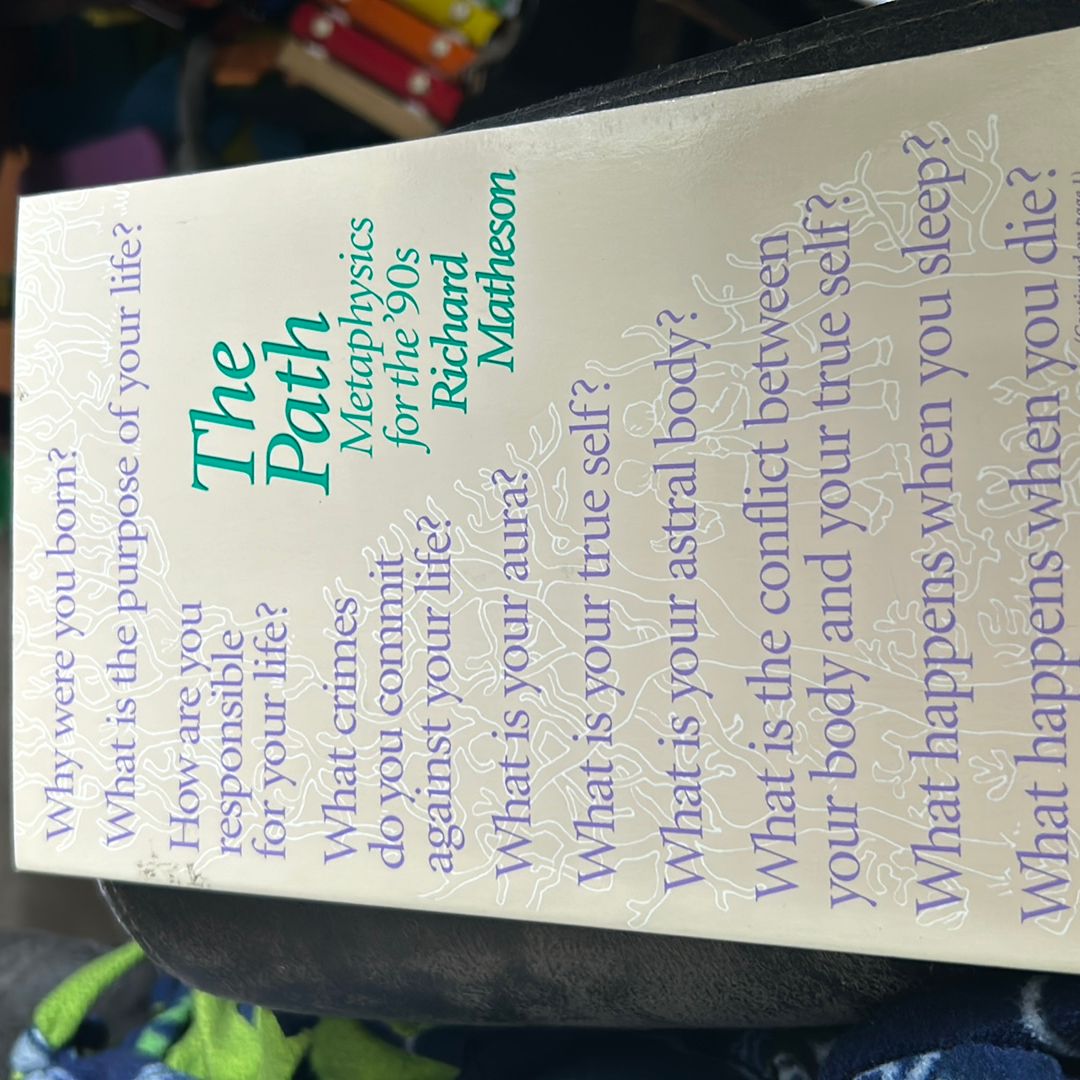 Why were you born?
What is the purpose of your life?
The
Path
Metaphysics
for the '90s
Richard
Matheson
How are you
responsible
for your life?
What crimes
do you commit
against your life?
What is your aura?
What is your true self?
What is your astral body?
What is the conflict between
your body and your true self?
What happens when you sleep?
What happens when you die?